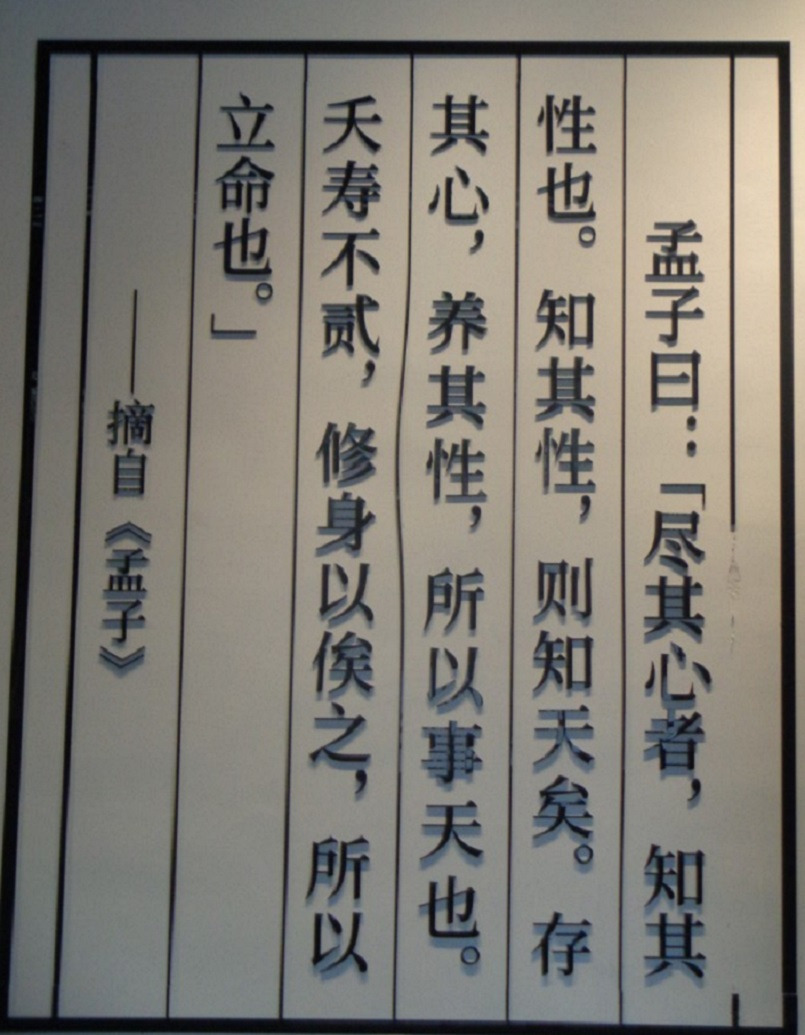 孟子曰：「尽其心者，知其
性也。知其性，则知天矣。存
其心，养其性，所以事天也。
夭寿不贰，修身以俟之，所以
立命也。」
——摘自《孟子》